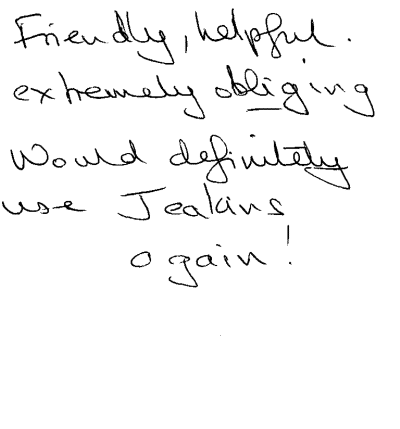 Friendly, helpful.
extremely obliging
Would definitely
use Jeakins
again!